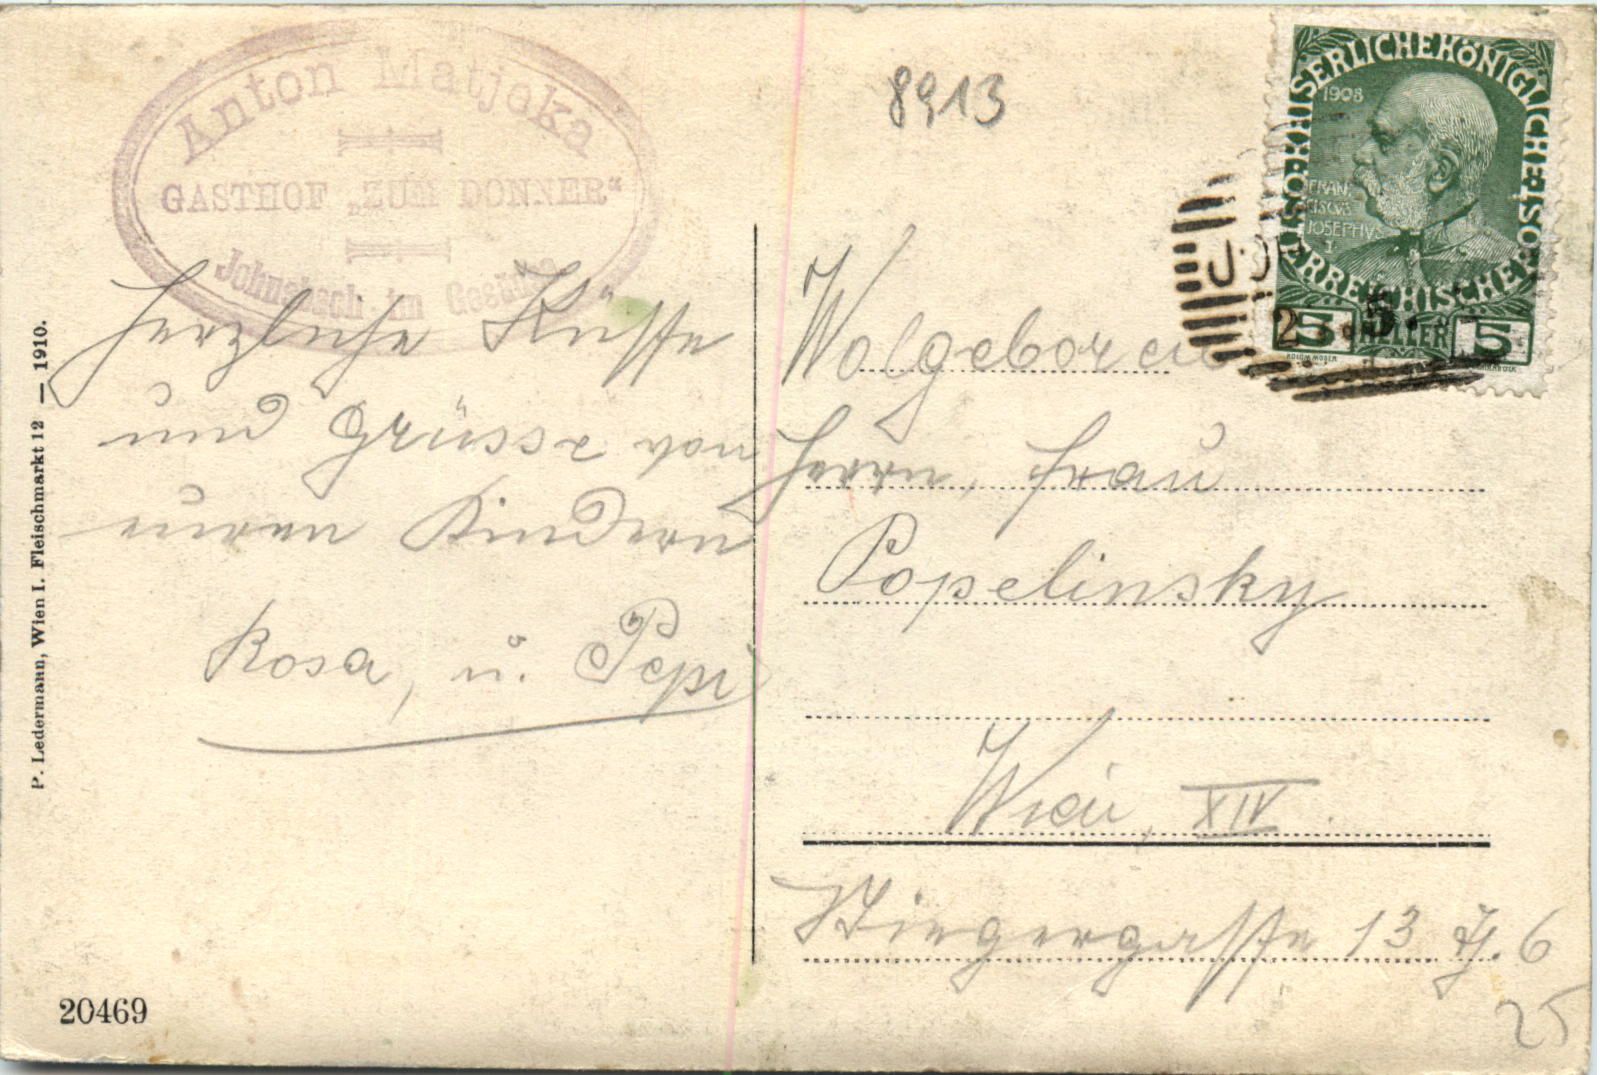 Anton Matjeka
GASTHOF „ZUM DONNER“
Johnsbach im Gesäuse
8913
KAISERLICHE KÖNIGLICHE ÖSTERREICHISCHE POST
1908
FRAN
CISCVS
JOSEPHVS
I
5 HELLER 5
Herzliche Küsse
und Grüsse von
euren Kindern
Rosa, u. Pepi
Wolgeboren
Herrn, Frau
Popelinsky
Wien, XIV.
13 T. 6
25
P. Ledermann, Wien I. Fleischmarkt 12 — 1910.
20469